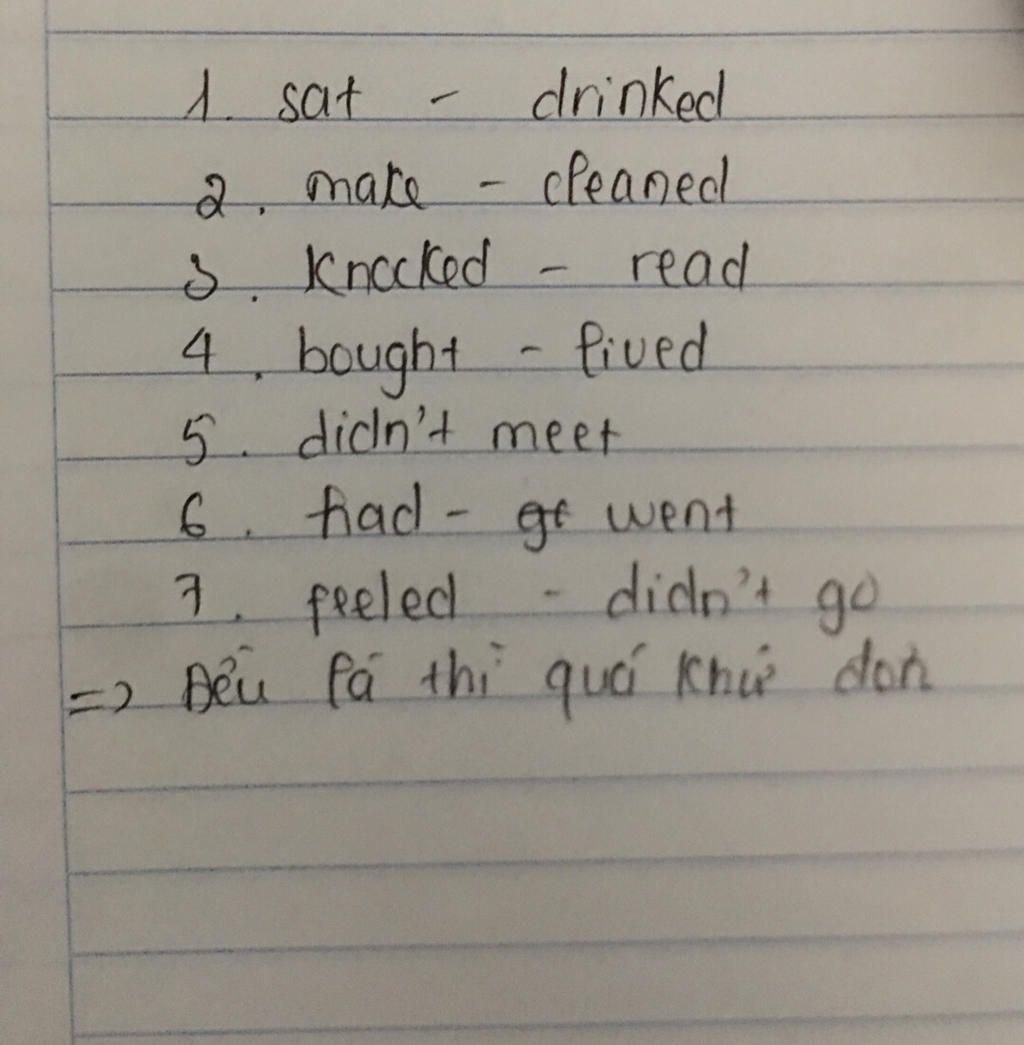 1. sat - drinked
2. make - cleaned
3. knocked - read
4. bought - lived
5. didn't meet
6. had - went
7. feeled - didn't go
=> Đều là thì quá khứ đơn